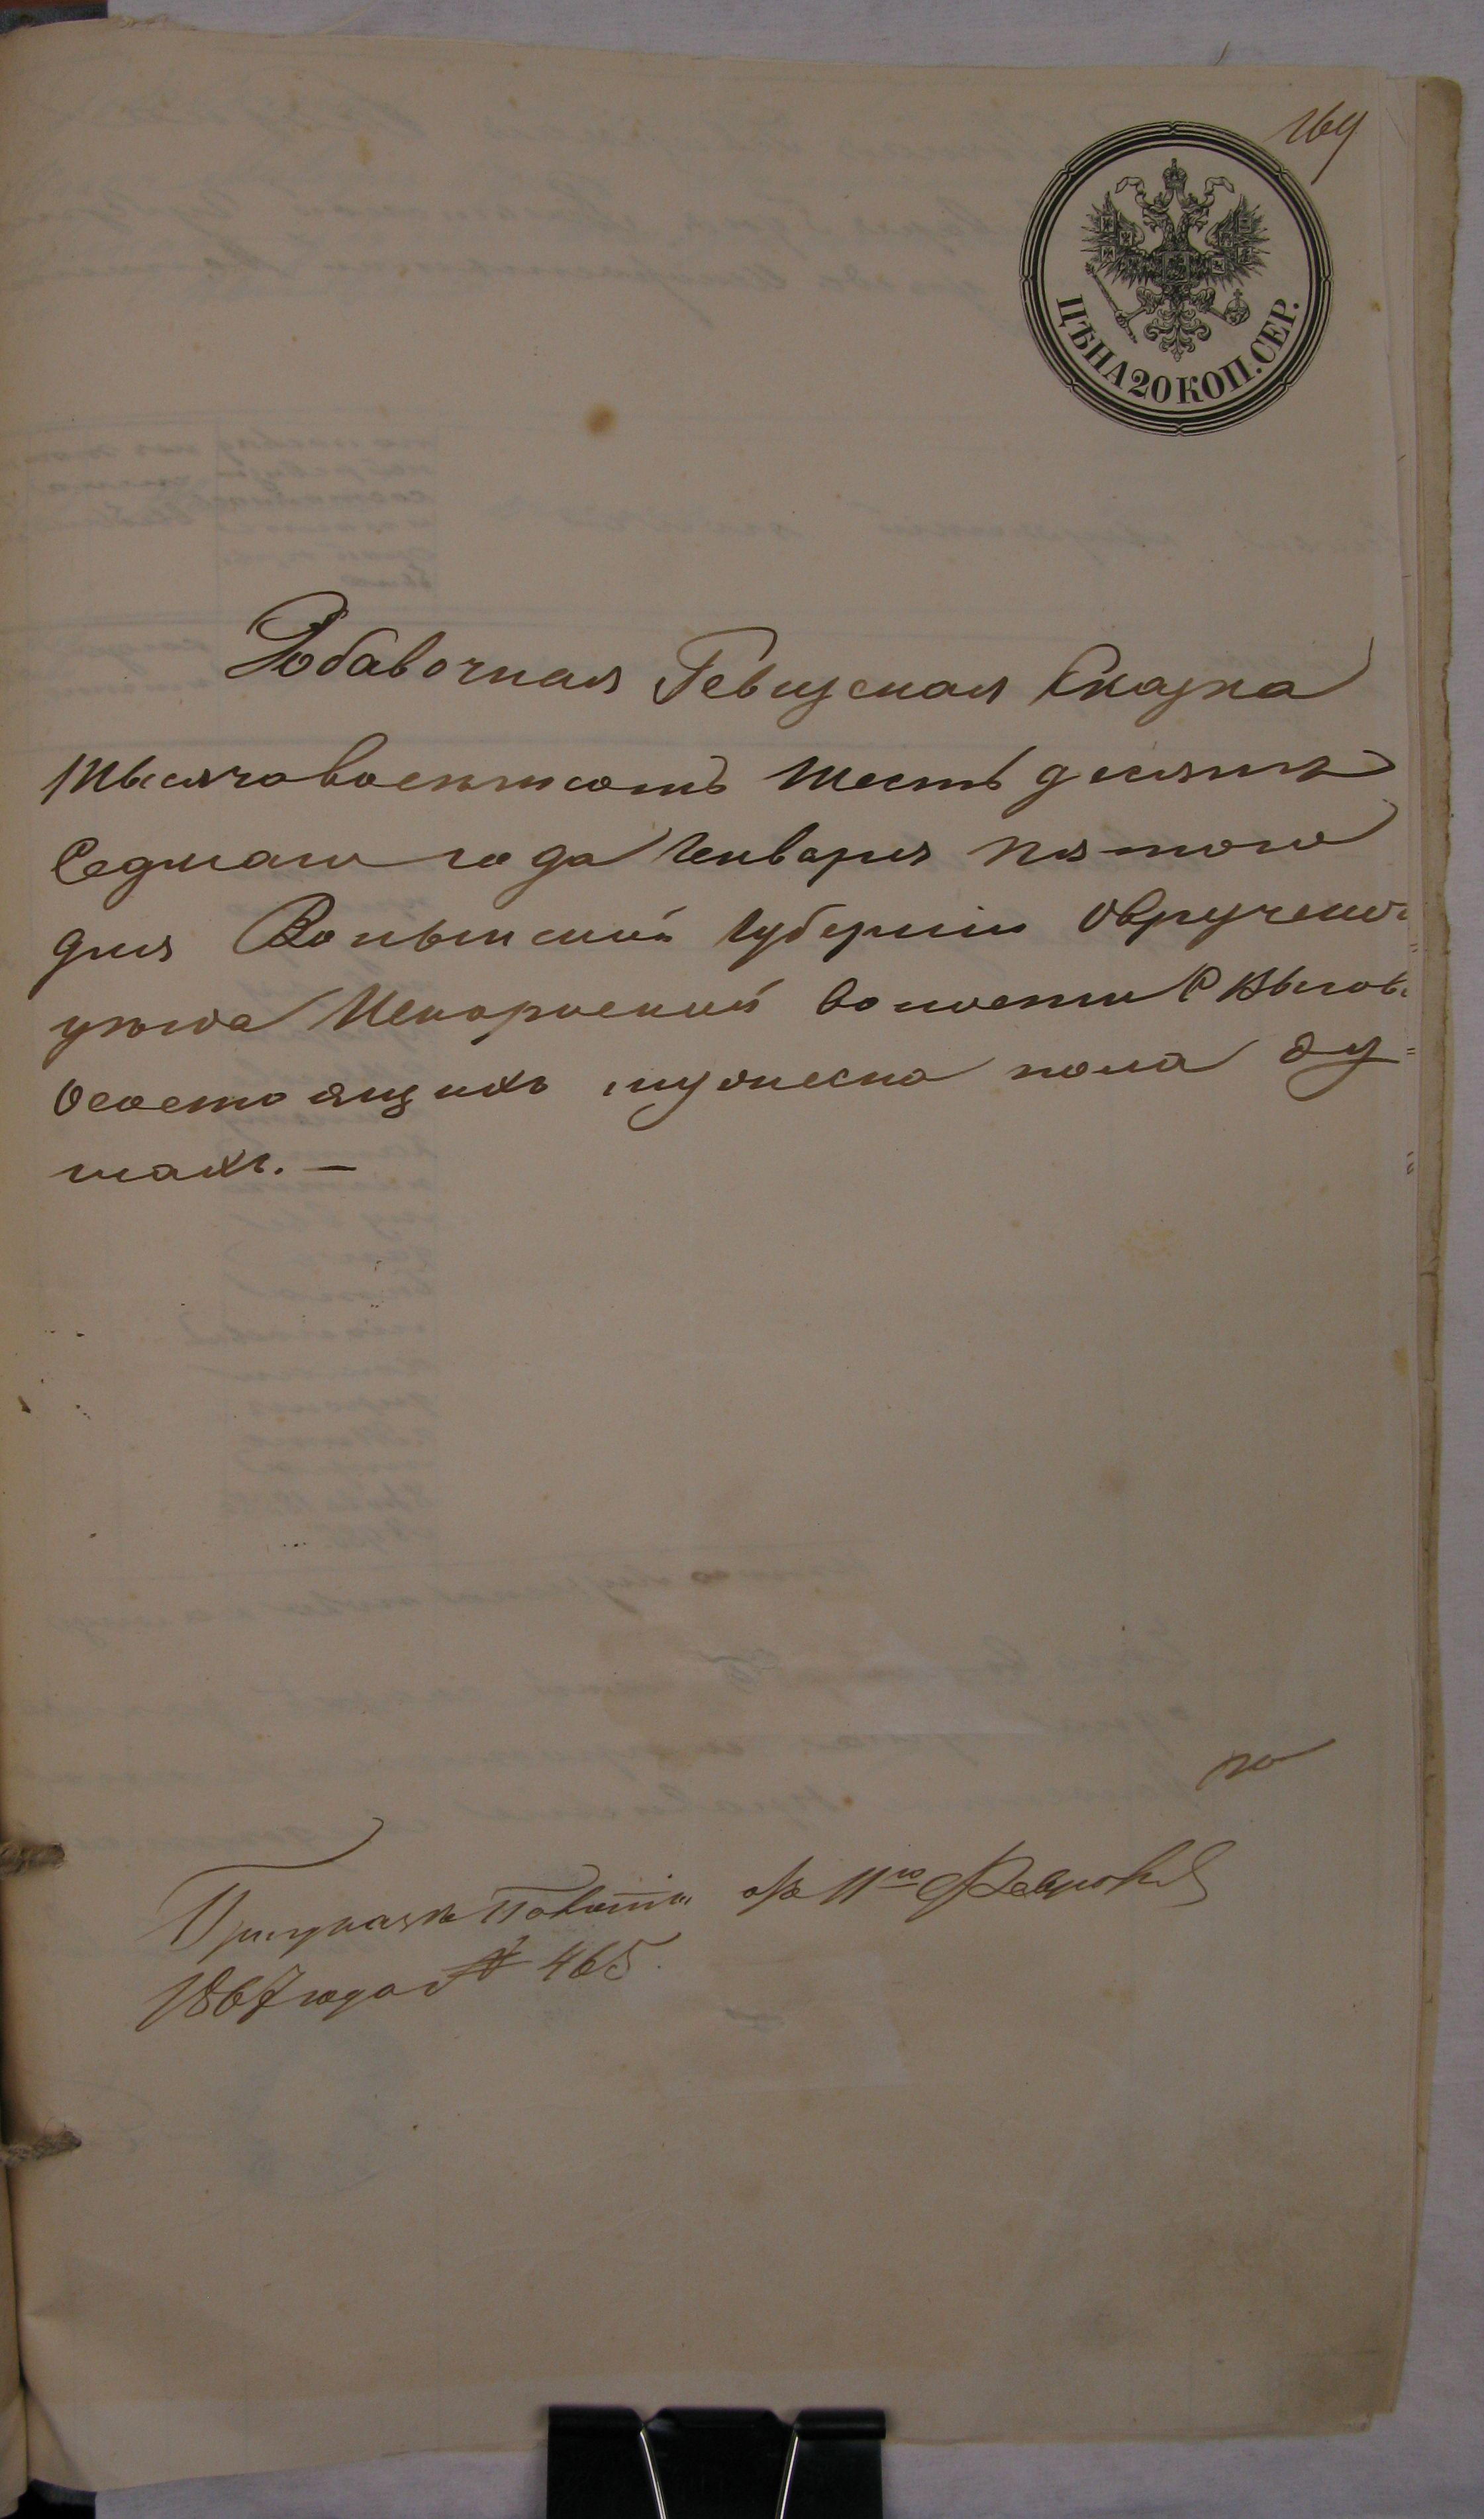 169
ЦѢНА 20 КОП. СЕР.
Добавочная Ревизская Сказка
тысячавосемьсотъ шестьдесятъ
Седмаго года Генваря пятого
дня Волынской губернии Овручско
уезда Искоросткой волости С
осостоящихъ мужеска пола ду
шахъ. —
При указе Палаты отъ 11го Февраля
1867 года № 465.